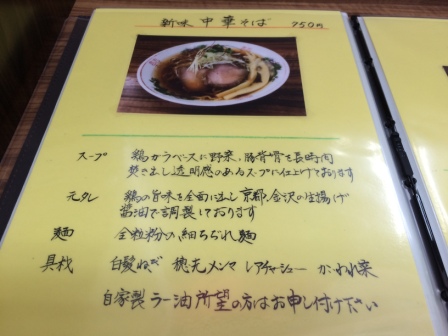 新味 中華そば 750円
スープ 鶏ガラベースに野菜、豚背骨を長時間
焚き出し透明感のあるスープに仕上げております
元タレ 鶏の旨味を全面に出し京都、金沢の生揚げ
醤油で調製しております
麺 全粒粉の細ちぢれ麺
具材 白髪ねぎ 穂先メンマ レアチャーシュー かいわれ菜
自家製ラー油所望の方はお申し付け下さい